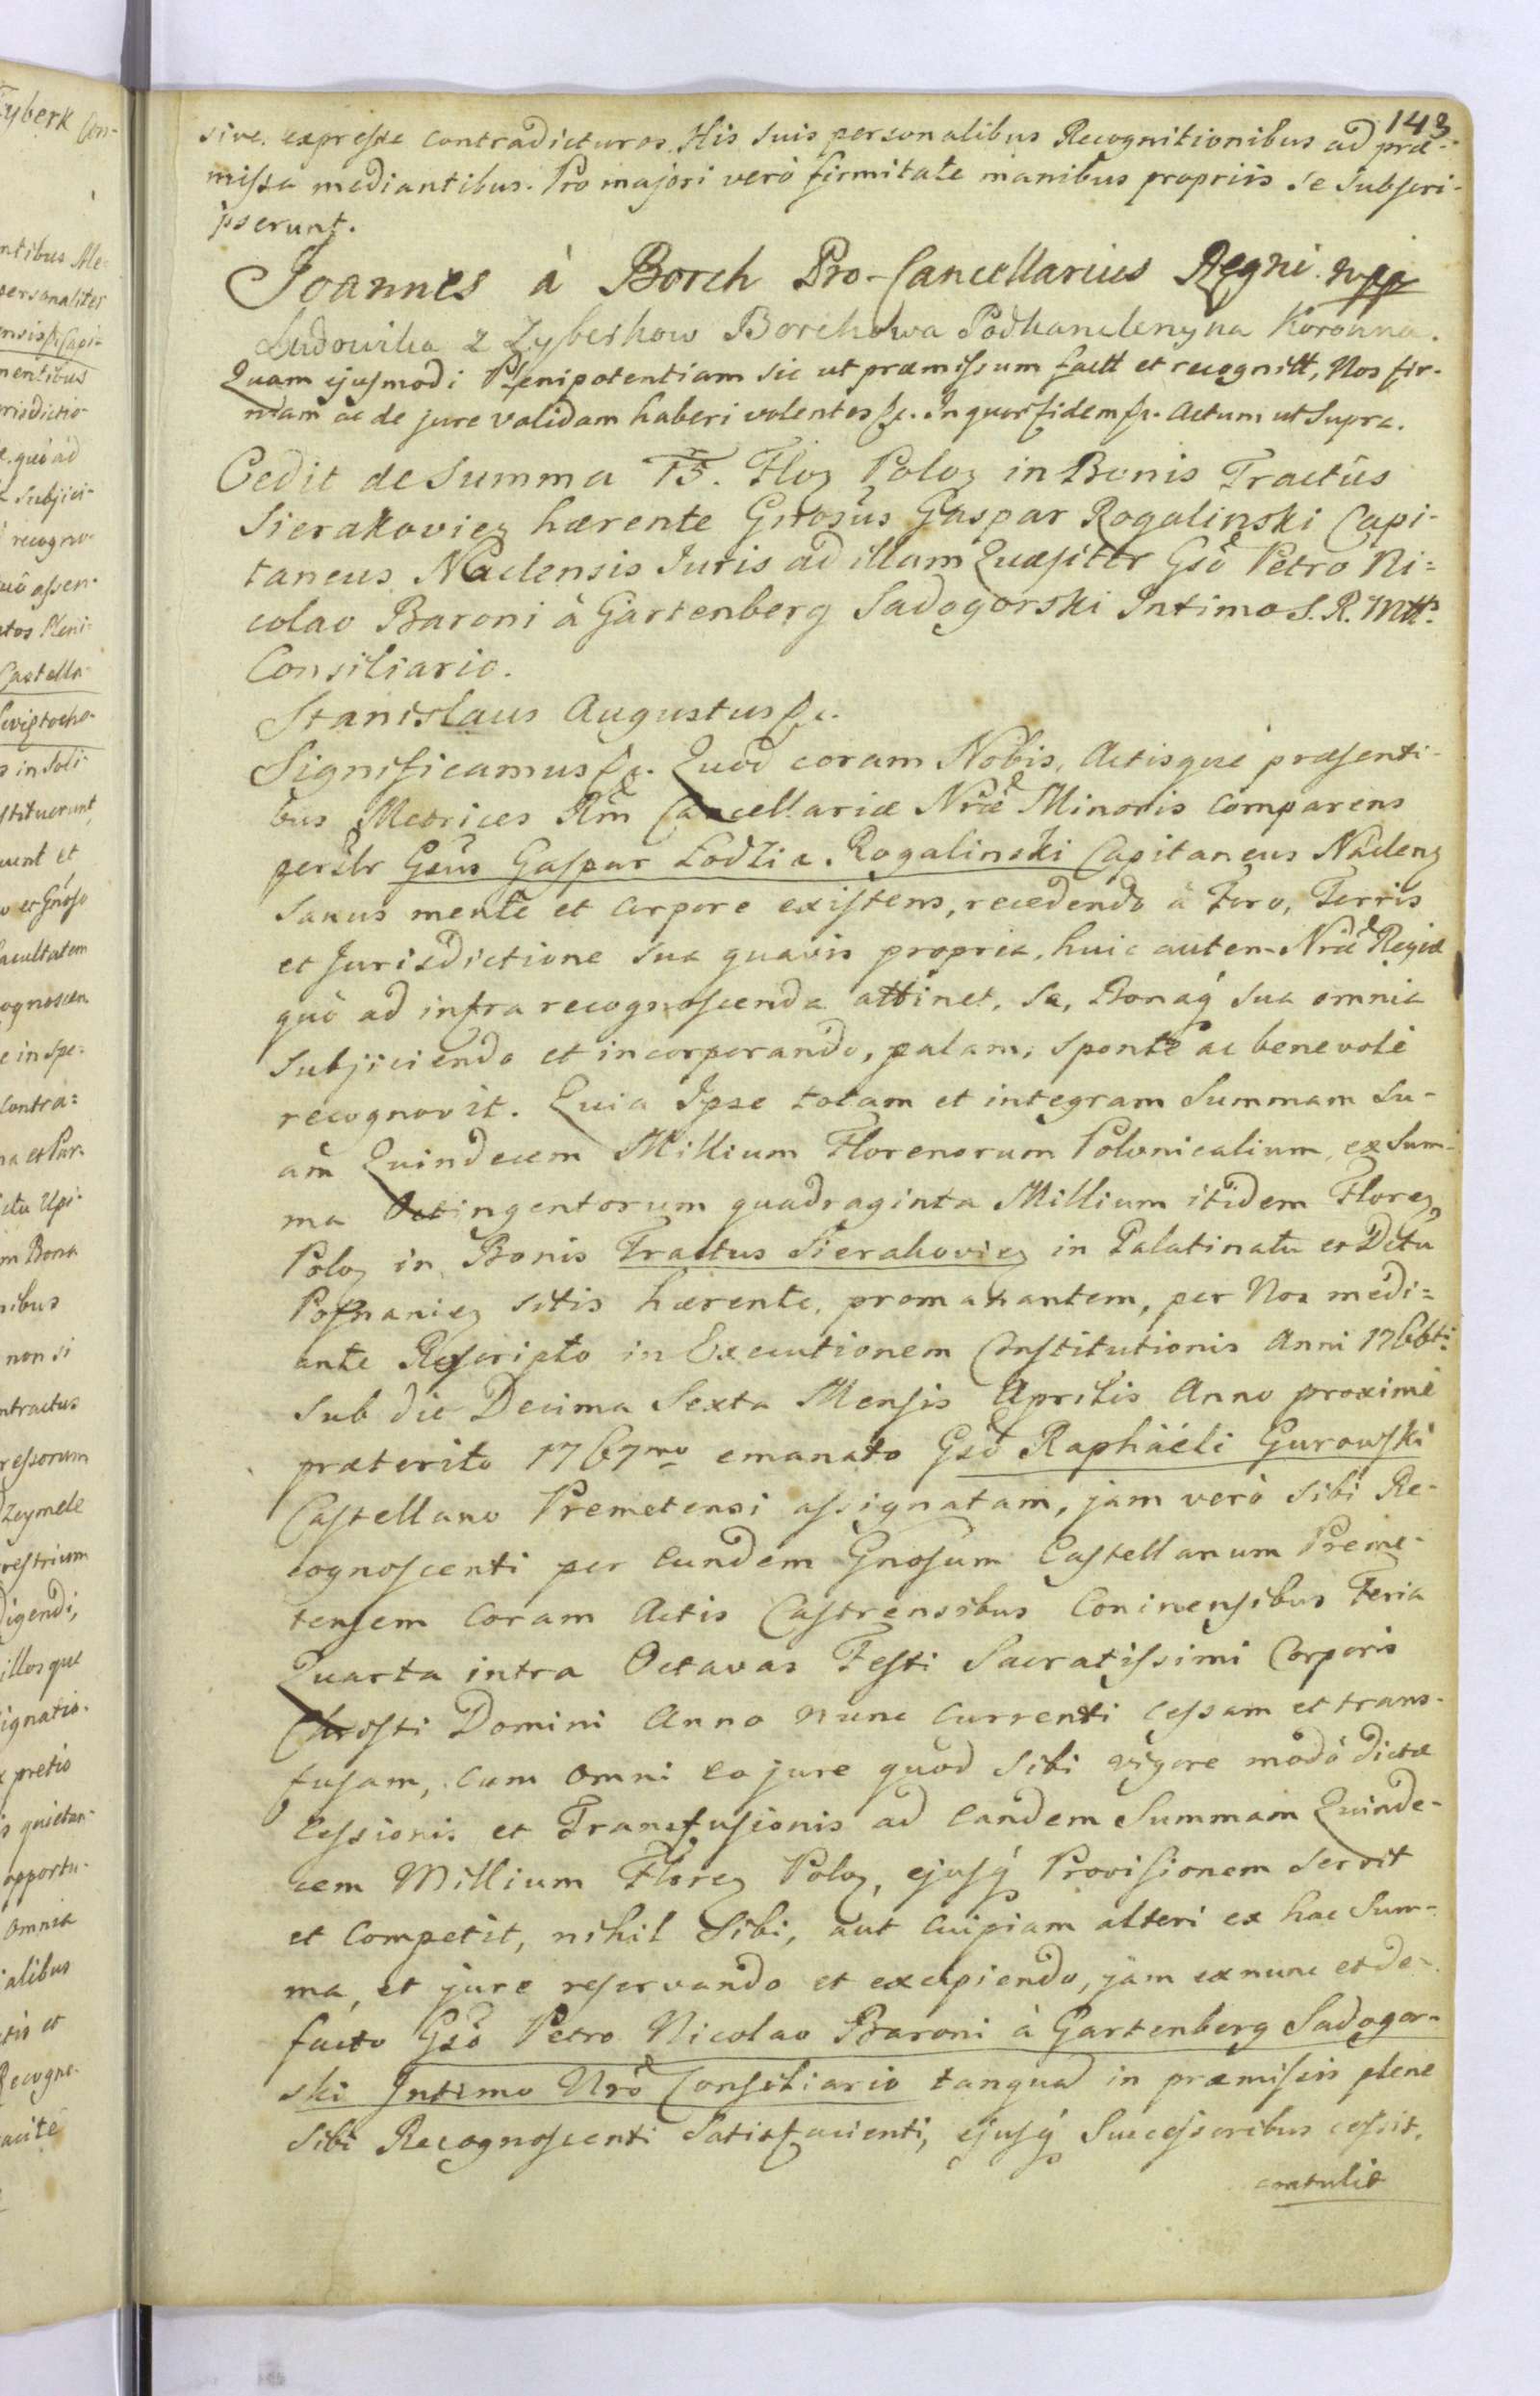 143
sive expresse contradicturos. His suis personalibus Recognitionibus ad præ-
missa mediantibus. Pro majori verò firmitate manibus propriis se subscri-
pserunt.
Joannes à Borch Pro-Cancellarius Regni mpp
Ludowika z Zyberkow Borchowa Podkanclerzyna Koronna.
Quam ejusmodi Plenipotentiam sic ut præmissum factt et recognitt, Nos fir-
mam ac de jure validam haberi volentes &c. In quor fidem &c. Actum ut Supra.
Cedit de Summa 15. Floz Poloz in Bonis Tractûs
Sierakoviez hærente Gnosus Gaspar Rogalinski Capi-
taneus Naclensis Juris ad illam Quæsitor Gso Petro Ni=
colao Baroni à Gartenberg Sadogorski Intimo S. R. Mttis
Consiliario.
Stanislaus Augustus &c.
Significamus &c. Quod coram Nobis, Actisque præsenti-
bus Metrices Rni Cancellariæ Nræ Minoris comparens
persltr Gsus Gaspar Łodzia Rogalinski Capitaneus Naclenz
sanus mente et corpore existens, recedendo à Foro, Terris
et Jurisdictione sua quavis propria, huic autem Nræ Regiæ
quò ad infra recognoscenda attinet, se, Bonaq sua omnia
subjiciendo et incorporando, palam, sponte ac benevole
recognovit. Quia Ipse totam et integram Summam su-
am Quindecem Millium Florenorum Polonicalium, ex Sum-
ma Octingentorum quadraginta Millium itidem Florez
Poloz in Bonis Tractus Sierakoviez in Palatinatu et Dctu
Posnaniez sitis hærente, promanantem, per Nos medi=
ante Rescripto in Executionem Constitutionis Anni 1766ti
sub die Decima Sexta Mensis Aprilis Anno proximè
præterito 1767mo emanato Gso Raphaéli Gurowski
Castellano Premetensi assignatam, jam verò sibi Re-
cognoscenti per eundem Gnosum Castellanum Preme-
tensem coram Actis Castrensibus Coninensibus Feria
Quarta intra Octavas Festi Sacratissimi Corporis
Christi Domini Anno nunc currenti cessam et trans-
fusam, cum omni eo jure quod sibi vigore modò dictæ
Cessionis et Transfusionis ad eandem Summam Quinde-
cem Millium Florez Poloz, ejusq Provisionem servit
et competit, nihil sibi, aut cuipiam alteri ex hac Sum-
ma, et jure reservando et excipiendo, jam ex nunc et de-
facto Gso Petro Nicolao Baroni à Gartenberg Sadogor-
ski Intimo Nro Consiliario tanquā in præmissis plene
sibi Recognoscenti Satisfacienti, ejusq Successoribus cessit,
contulit